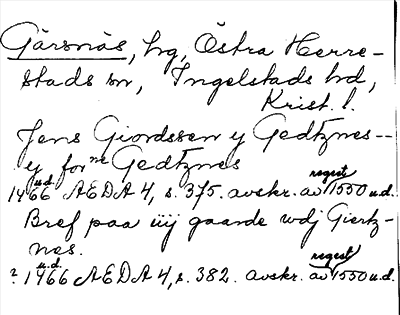 Gärsnäs, hg, Östra Herre-
stads sn, Ingelstads hd,
Krist. l.
Jens Giordssen y Gedtznes--
y for ne Gedtznes
u.d. regest
1466 AEDA 4, s. 375. avskr. av 1550 u.d.
Bref paa iiij gaarde wdj Giertz-
nes.
u.d. regest
? 1466 AEDA 4, s. 382. avskr. av 1550 u.d.